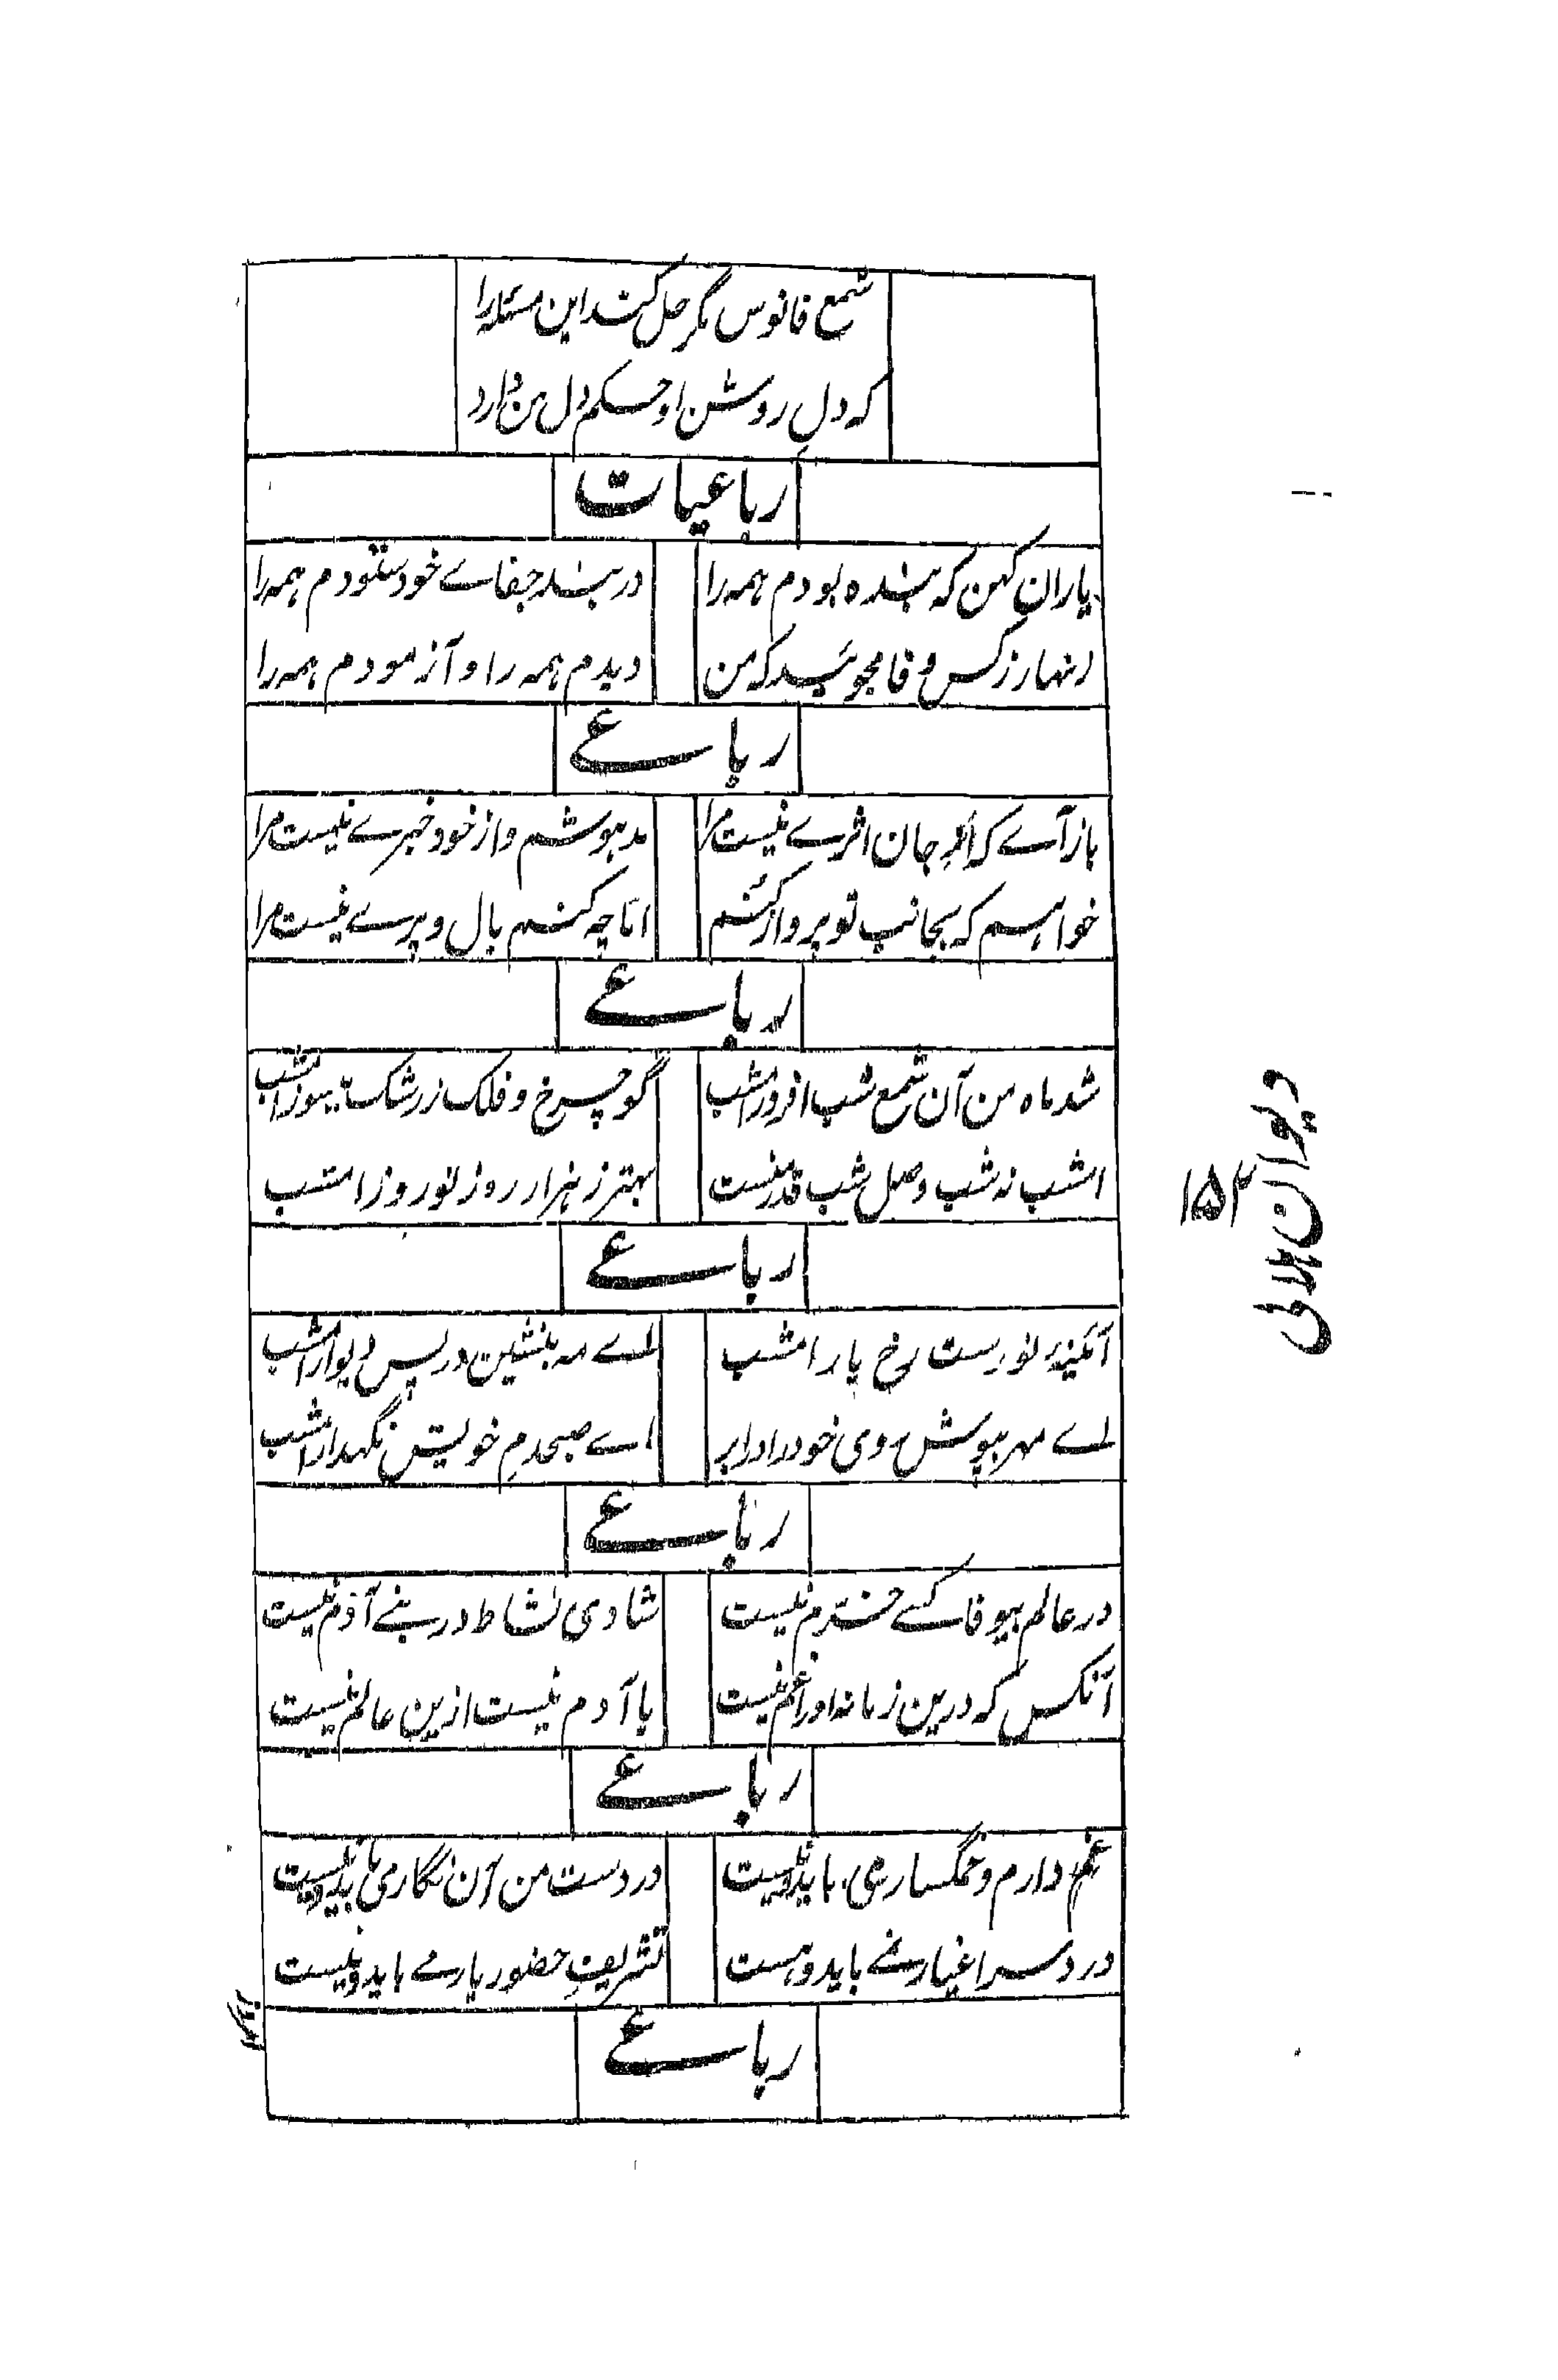 شمع فانوس مگر حل کند این مسئله را
که دل روشن او حکم دل من دارد
رباعیات
یاران کهن که بنده بودم همه را در بند جفاے خود ستودم همه را
زنهار ز کس وفا مجوئید که من دیدم همه را و آزمودم همه را
رباعے
باز آے که از جان اثرے نیست مرا مدهوشم و از خود خبرے نیست مرا
خواهم که بجانب تو پرواز کنم اما چه کنم بال و پرے نیست مرا
رباعے
شد ماه من آن شمع شب افروز امشب گو چرخ و فلک ز رشک بسوز امشب
امشب نه شب وصل شب قدر منست بهتر ز هزار روز نوروز امشب
رباعے
آئینهٔ نورست رخ یار امشب اے مه بنشین در پس دیوار امشب
اے مهر بپوش روی خود را در ابر اے صبحدم خویش نگهدار امشب
رباعے
در عالم بیوفا کسے خرم نیست شادی نشاط در بنے آدم نیست
آنکس که درین زمانه او را غم نیست یا آدم نیست از ین عالم نیست
رباعے
غم دارم و غمگساری باید و نیست در دست من آن نگاری باید و نیست
درد سر اغیار نمے باید و هست تشریف حضور یارے باید و نیست
رباعے
دیوان ہلالی
۱۵۲